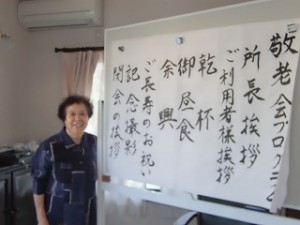 敬老会プログラム
所長挨拶
ご利用者様挨拶
乾杯
御昼食
余興
ご長寿のお祝い
記念撮影
閉会の挨拶